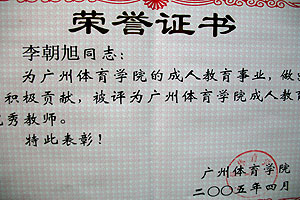 荣誉证书
李朝旭同志：
为广州体育学院的成人教育事业，做
积极贡献，被评为广州体育学院成人教
秀教师。
特此表彰！
广州体育学院
二〇〇五年四月